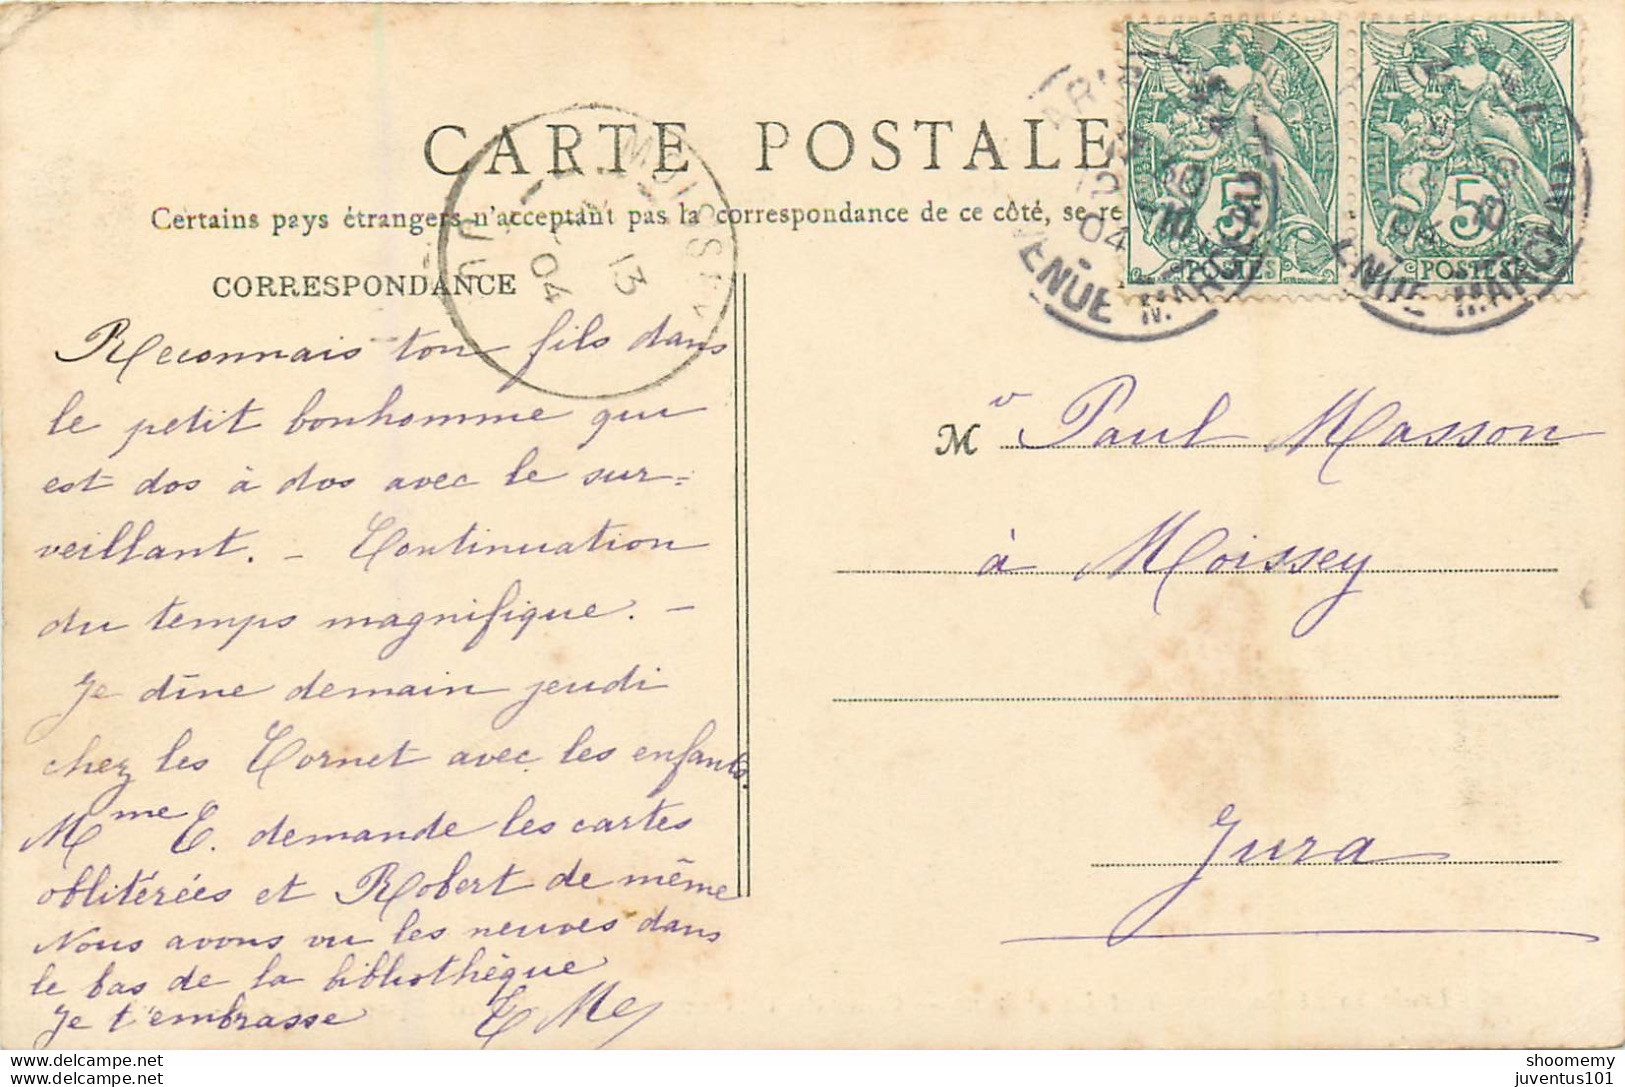 CARTE POSTALE
Certains pays étrangers n'acceptant pas la correspondance de ce côté, se re
CORRESPONDANCE
MOISSEY
13
04
JU
04
10
MARCEAU
POSTES
5
POSTES
5
Reconnais ton fils dans
le petit bonhomme qui
est dos à dos avec le sur=
veillant. – Continuation
du temps magnifique. –
Je dîne demain jeudi
chez les Cornet avec les enfants.
Mme C. demande les cartes
oblitérées et Robert de même
Nous avons vu les neuves dans
le bas de la bibliothèque
Je t'embrasse
Mr Paul Masson
à Moissey
Jura
shoomemy
juventus101